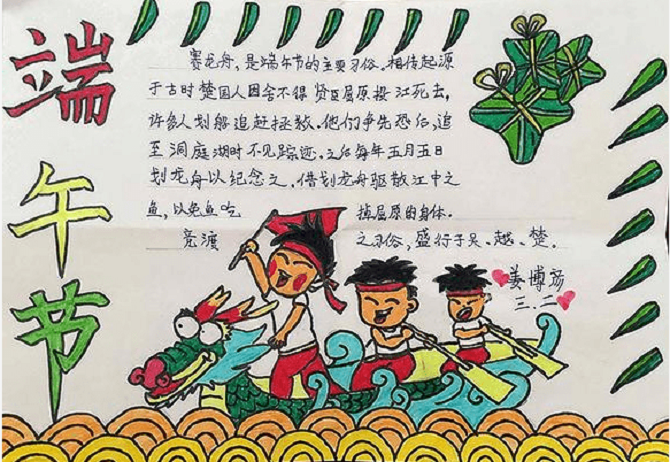 端午节
赛龙舟，是端午节的主要习俗。相传起源
于古时楚国人因舍不得贤臣屈原投江死去，
许多人划船追赶拯救。他们争先恐后，追
至洞庭湖时不见踪迹。之后每年五月五日
划龙舟以纪念之。借划龙舟驱散江中之
鱼，以免鱼吃掉屈原的身体。
竞渡之习俗，盛行于吴、越、楚。
姜博扬
三.二